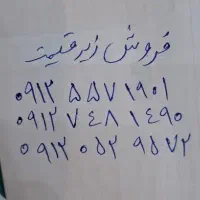 فروش زیر قیمت
۰۹۱۲ ۵۵۷۱۹۰۱
۰۹۱۲ ۷۴۸۱۴۹۰
۰۹۱۲ ۰۵۲ ۹۵۷۲